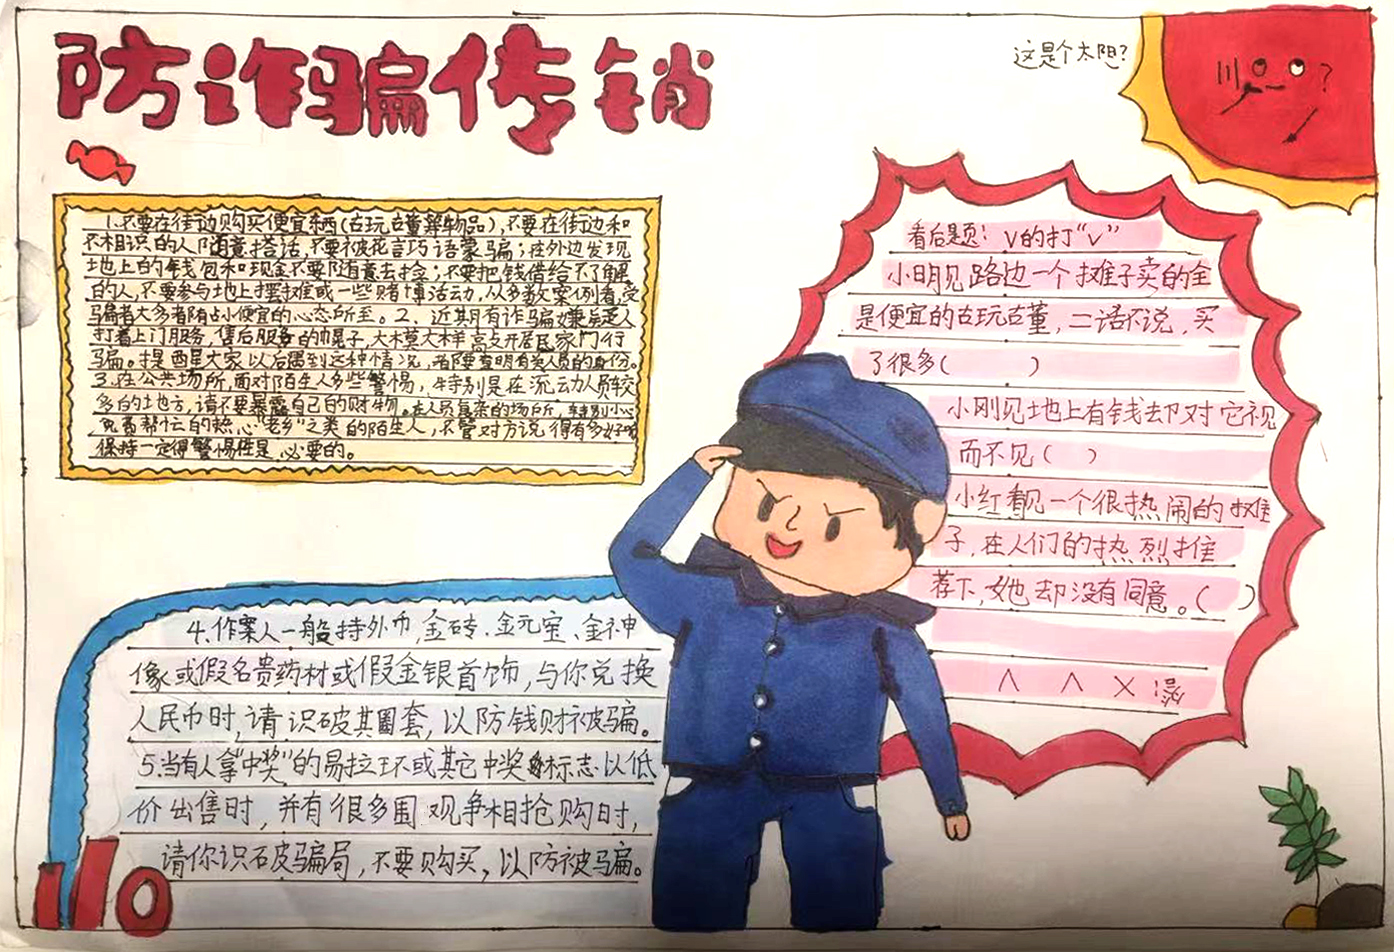 防诈骗传销
这是个太阳？
1.不要在街边购买便宜东西(古玩古董等物品),不要在街边和
不相识的人随意搭话,不要被花言巧语蒙骗；在外边发现
地上的钱包和现金不要随意去捡；不要把钱借给不了解
的人,不要参与地上摆摊或一些赌博活动,从多数案例看,受
骗者大多者陏占小便宜的心态所至。2、近期有诈骗嫌疑人
打着上门服务,售后服务的幌子,大模大样高支开居民家门行
骗。提醒大家以后遇到这种情况,都要查明有关人员的身份。
3.在公共场所,面对陌生人多些警惕,特别是在流动人员较
多的地方,请不要暴露自己的财物。在人员复杂的场所,特别小心
帮忙的热心"老乡"之类的陌生人,不管对方说得有多好听
保持一定得警惕性是必要的。
4.作案人一般持外币,金砖、金元宝、金神
像或假名贵药材或假金银首饰,与你兑换
人民币时,请识破其圈套,以防钱财被骗。
5.当有人拿"中奖"的易拉环或其它中奖标志以低
价出售时,并有很多围观争相抢购时,
请你识破骗局,不要购买,以防被骗。
110
看后题：V的打"V"
小明见路边一个摊子卖的全
是便宜的古玩古董,二话不说,买
了很多(　　)
小刚见地上有钱却对它视
而不见(　)
小红看见一个很热闹的摊
子,在人们的热烈推
荐下,她却没有同意。(　)
答:X V V